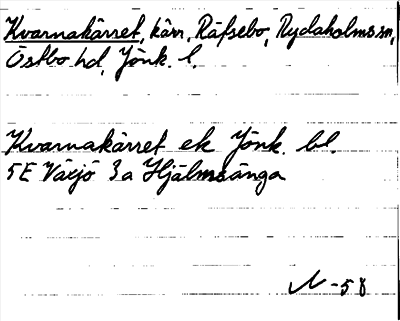 Kvarnakärret, kärr, Räfsebo, Rydaholms sn,
Östbo hd, Jönk. l.
Kvarnakärret ek Jönk. bl.
5E Växjö 3a Hjälmsänga
N-58